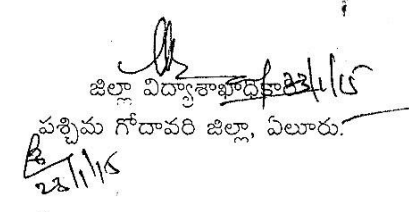 జిల్లా విద్యాశాఖాధికారి 23/1/15
పశ్చిమ గోదావరి జిల్లా, ఏలూరు.
23/1/15